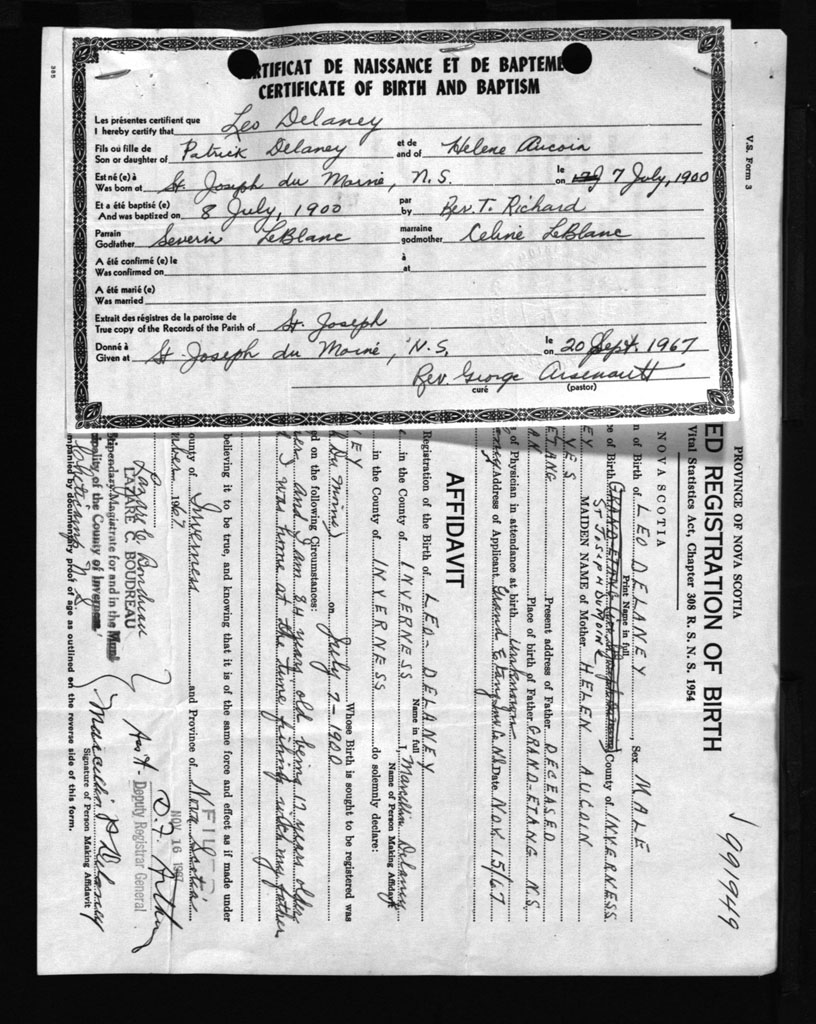 385
RTIFICAT DE NAISSANCE ET DE BAPTEME
CERTIFICATE OF BIRTH AND BAPTISM
Les présentes certifient que
I hereby certify that Leo Delaney
Fils ou fille de et de
Son or daughter of Patrick Delaney and of Helene Aucoin
Est né (e) à le
Was born at St. Joseph du Moine, N.S. on 7 July, 1900
Et a été baptisé (e) par
And was baptized on 8 July, 1900 by Rev. T. Richard
Parrain marraine
Godfather Severin LeBlanc godmother Celine LeBlanc
A été confirmé (e) le à
Was confirmed on at
A été marié (e)
Was married
Extrait des régistres de la paroisse de
True copy of the Records of the Parish of St. Joseph
Donné à le
Given at St. Joseph du Moine, N.S. on 20 Sept. 1967
Rev. George Arsenault
curé (pastor)
V.S. Form 3
PROVINCE OF NOVA SCOTIA
ED REGISTRATION OF BIRTH
Vital Statistics Act, Chapter 308 R. S. N. S. 1954
991949
NOVA SCOTIA
n of Birth of LEO DELANEY, Sex MALE
Print Name in full
ce of Birth ST JOSEPH DU MOINE County of INVERNESS
EY MAIDEN NAME of Mother HELEN AUCOIN
YES
ETANG Present address of Father DECEASED
AN Place of birth of Father GRAND-ETANG N.S.
of Physician in attendance at birth Unknown
Address of Applicant Grand Etang Inv. Co. N.S. Date Nov. 15/67
AFFIDAVIT
Registration of the Birth of LEO-DELANEY
Name in full
in the County of INVERNESS I, Marcellin Delaney
Name of Person Making Affidavit
in the County of INVERNESS do solemnly declare:
EY Whose Birth is sought to be registered was
Du Moine) on July 7-1900
ed on the following Circumstances:
and I am 84 years old being 17 years older
I was home at the time fishing with my father
believing it to be true, and knowing that it is of the same force and effect as if made under
ounty of Inverness and Province of Nova Scotia
mber 1967
FILED
NOV 16 1967
D. F. Arthur
Asst - Deputy Registrar General
Lazare C. Boudreau
LAZARE C. BOUDREAU
Stipendiary Magistrate for and in the Muni-
cipality of the County of Inverness
Cheticamp N.S.
Marcellin P Delaney
Signature of Person Making Affidavit
mpanied by documentary proof of age as outlined on the reverse side of this form.